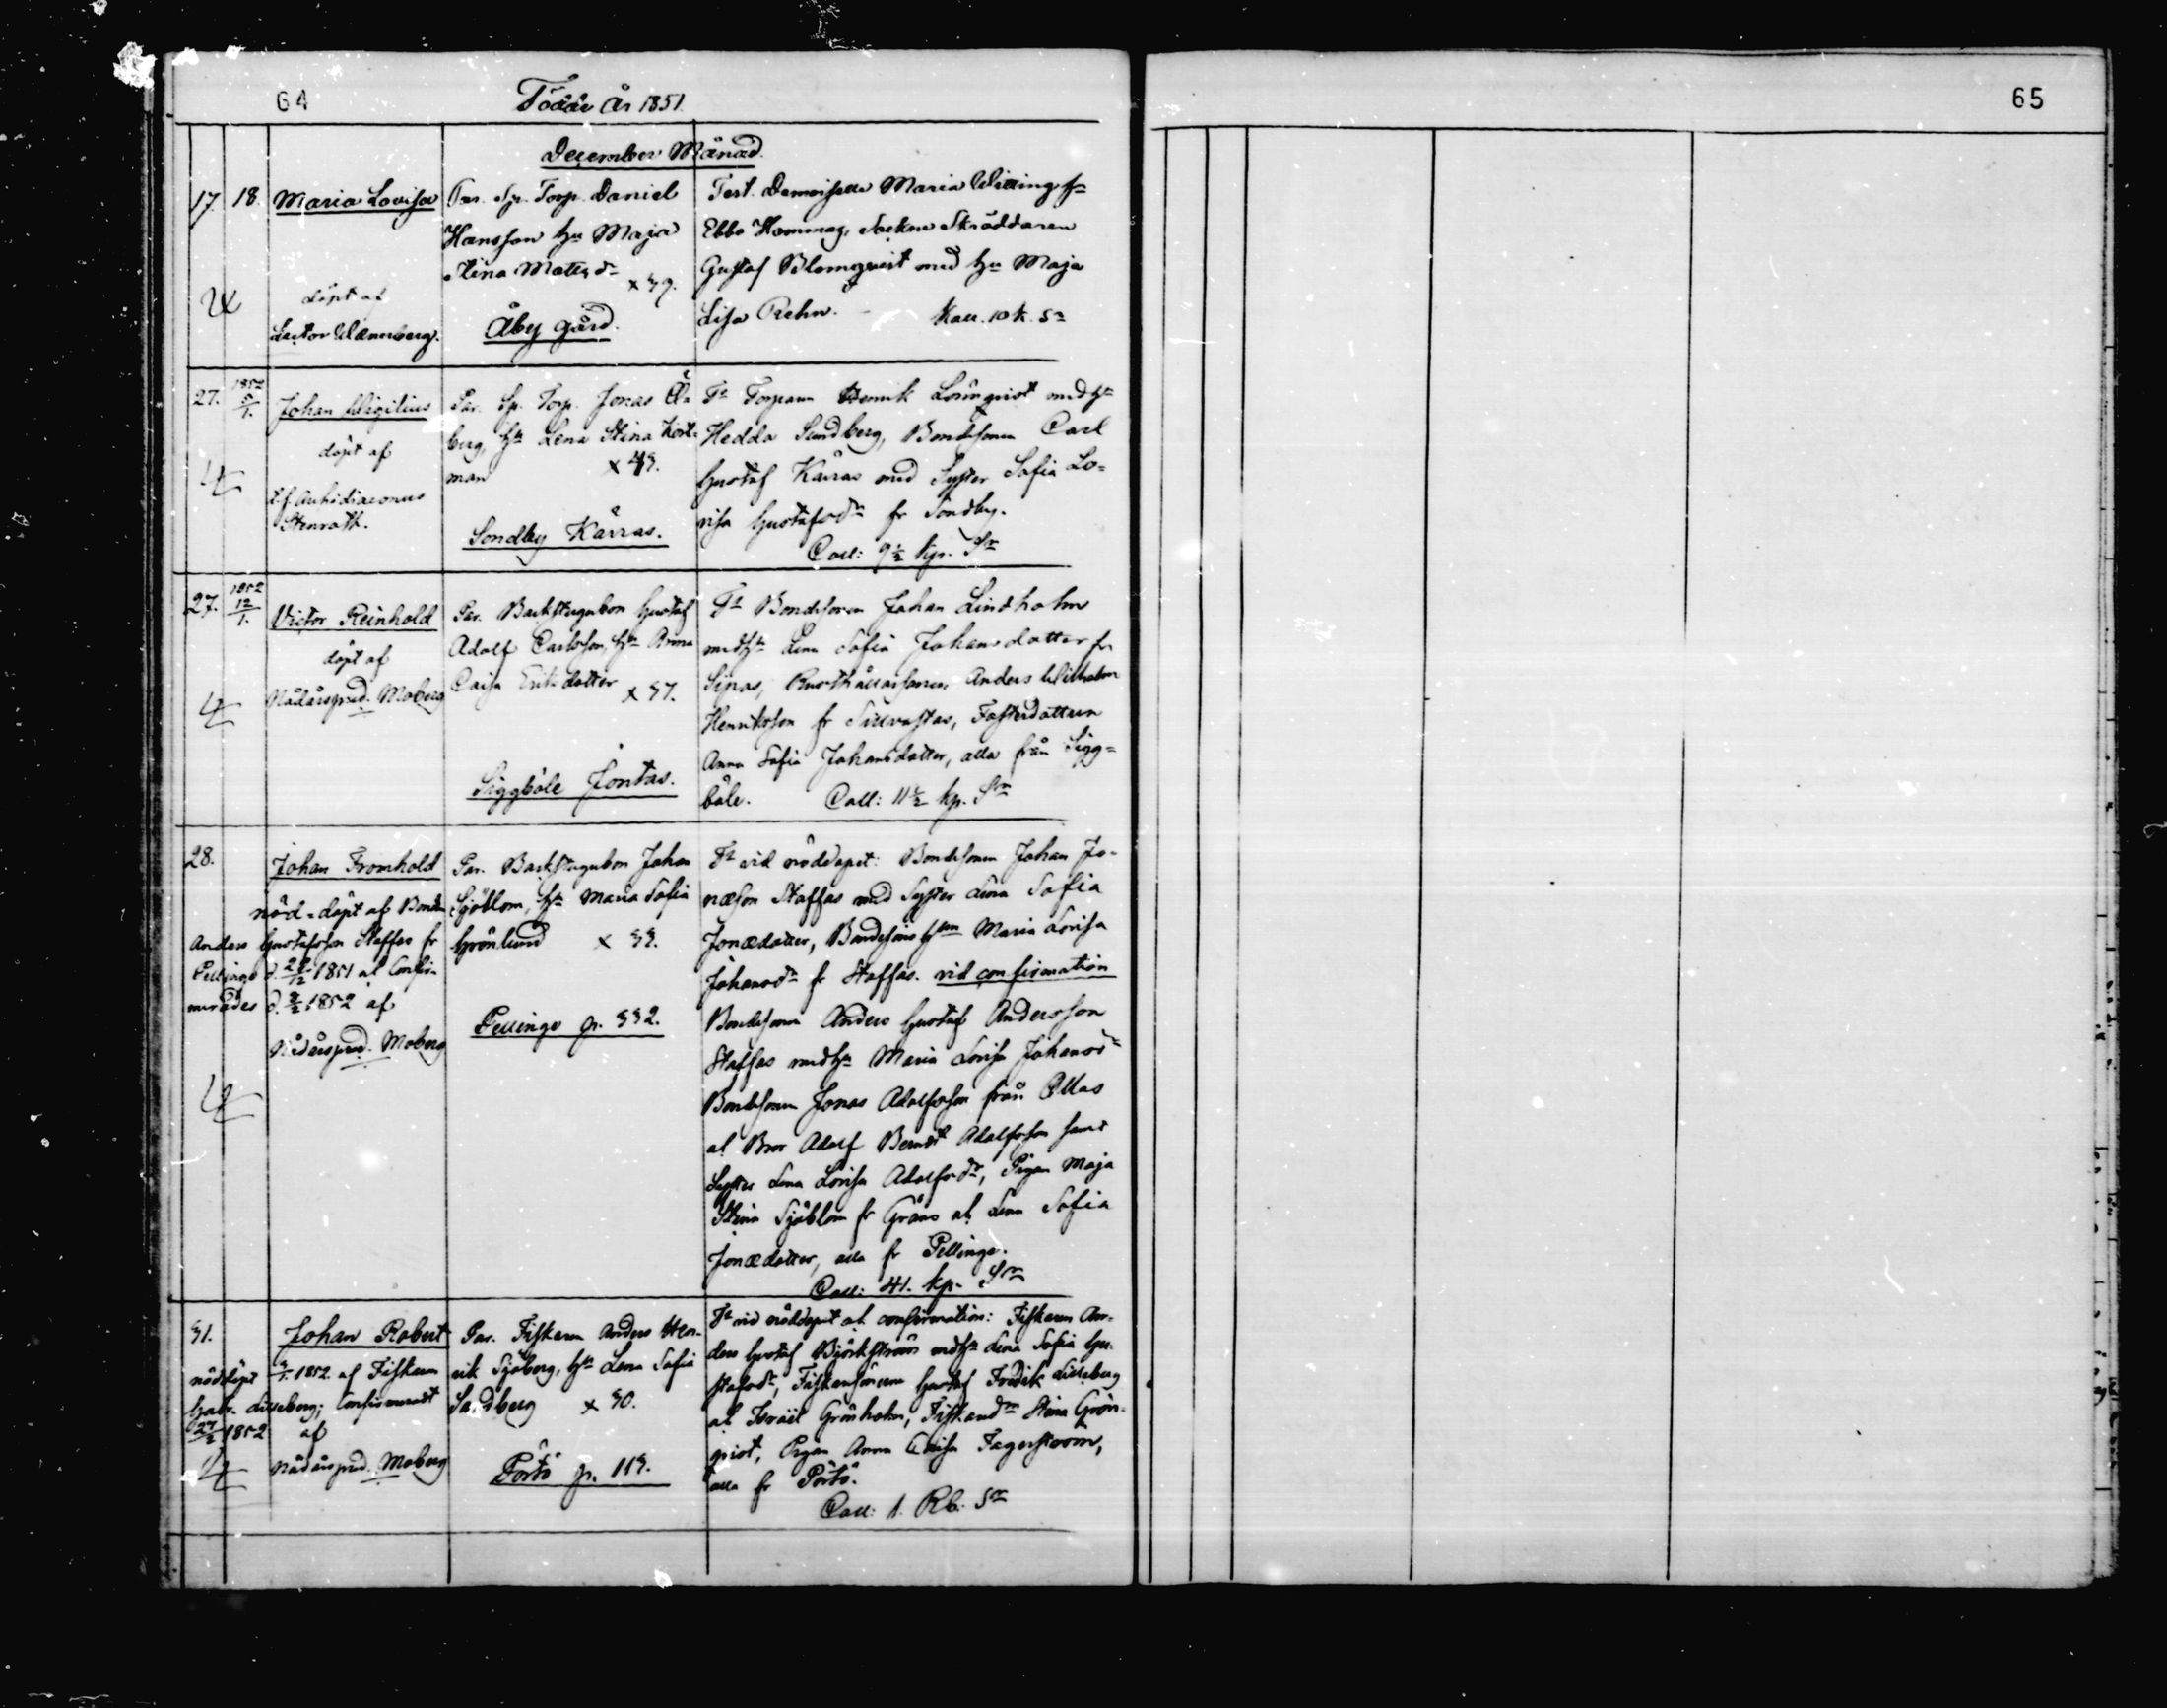 64
Födde År 1851.
65
December Månad.
17. 18. Maria Lovisa
döpt af
Lector Wannberg.
Par. Sp. Torp. Daniel
Hansson hu Maja
Stina Mats dr
x 39.
Åby gård.
Test. Demoiselle Maria Witting fr
Ebbo Hommag, Sockne Skräddaren
Gustaf Blomqvist med hu Maja
Lisa Rehn. Koll. 10 k. Sr
27. 1852 5/1. Johan Wigilius
döpt af
v.f. Archidiaconus
Stenroth.
Par. Sp. Torp. Jonas Å=
berg, hu Lena Stina
man x 43.
Sondby Kärras.
Tt Torparen Henrik Lönnqvist med hu
Hedda Sundberg, Bondesonen Carl
Gustaf Kärras med Syster Sofia Lo=
visa Gustafsdr fr Sondby.
Coll: 9½ kp. Sr
27. 1852 12/1. Victor Reinhold
döpt af
Nådårspred. Moberg
Par. Backstugubon Gustaf
Adolf Carlsson, hu Anna
Caisa Eriksdotter x 37.
Siggböle Jontas.
Tt Bondesonen Johan Lindholm
med hu Lena Sofia Johansdotter fr
Sipas, Rusthållarsonen Anders Wilhelm
Henriksson fr Sillvastas, Fosterdottren
Anna Sofia Johansdotter, alla från Sigg=
böle. Coll: 11½ kp. Sr
28. Johan Fromhold
nöd-döpt af Bonden
Anders Gustafsson Staffas fr
Pellinge d. 28/12 1851 o. Confir-
merades d. 2/2 1852 af
Nådårspred. Moberg
Par. Backstugubon Johan
Sjöblom, hu Maria Sofia
Grönlund x 33.
Pellinge p. 332.
Tt vid nöddopet: Bondesonen Johan Jo-
næson Staffas med Syster Lena Sofia
Jonædotter, Bondesons hun Maria Lovisa
Johansdr fr Staffas. vid confirmation
Bondesonen Anders Gustaf Andersson
Staffas med hu Maria Lovisa Johansdr
Bondesonen Jonas Adolfsson från Ollas
o. Bror Adolf Berndt Adolfsson samt
Syster Lena Lovisa Adolfsdr, Pigan Maja
Stina Sjöblom fr Gräns o. Lena Sofia
Jonædotter, alla fr Pellinge.
Coll: 41. kp. Sr
31. Johan Robert
nöddöpt 3/1. 1852. af Fiskaren
Gabr. Lilleberg; Confirmerad
27/2 1852 af
Nådårspred. Moberg
Par. Fiskaren Anders Hen-
rik Sjöberg, hu Lena Sofia
Sandberg x 30.
Pörtö p. 113.
Tt vid nöddopet o. confirmation: Fiskaren An-
ders Gustaf Björkström med hu Lena Sofia Gu-
stafsdr, Fiskaresönerne Gustaf Fredrik Lilleberg
o. Israël Grönholm, Fiskaredr Stina Grön-
qvist, Pigan Anna Lovisa Fagerström,
alla fr Pörtö.
Coll: 1. Rb. Sr